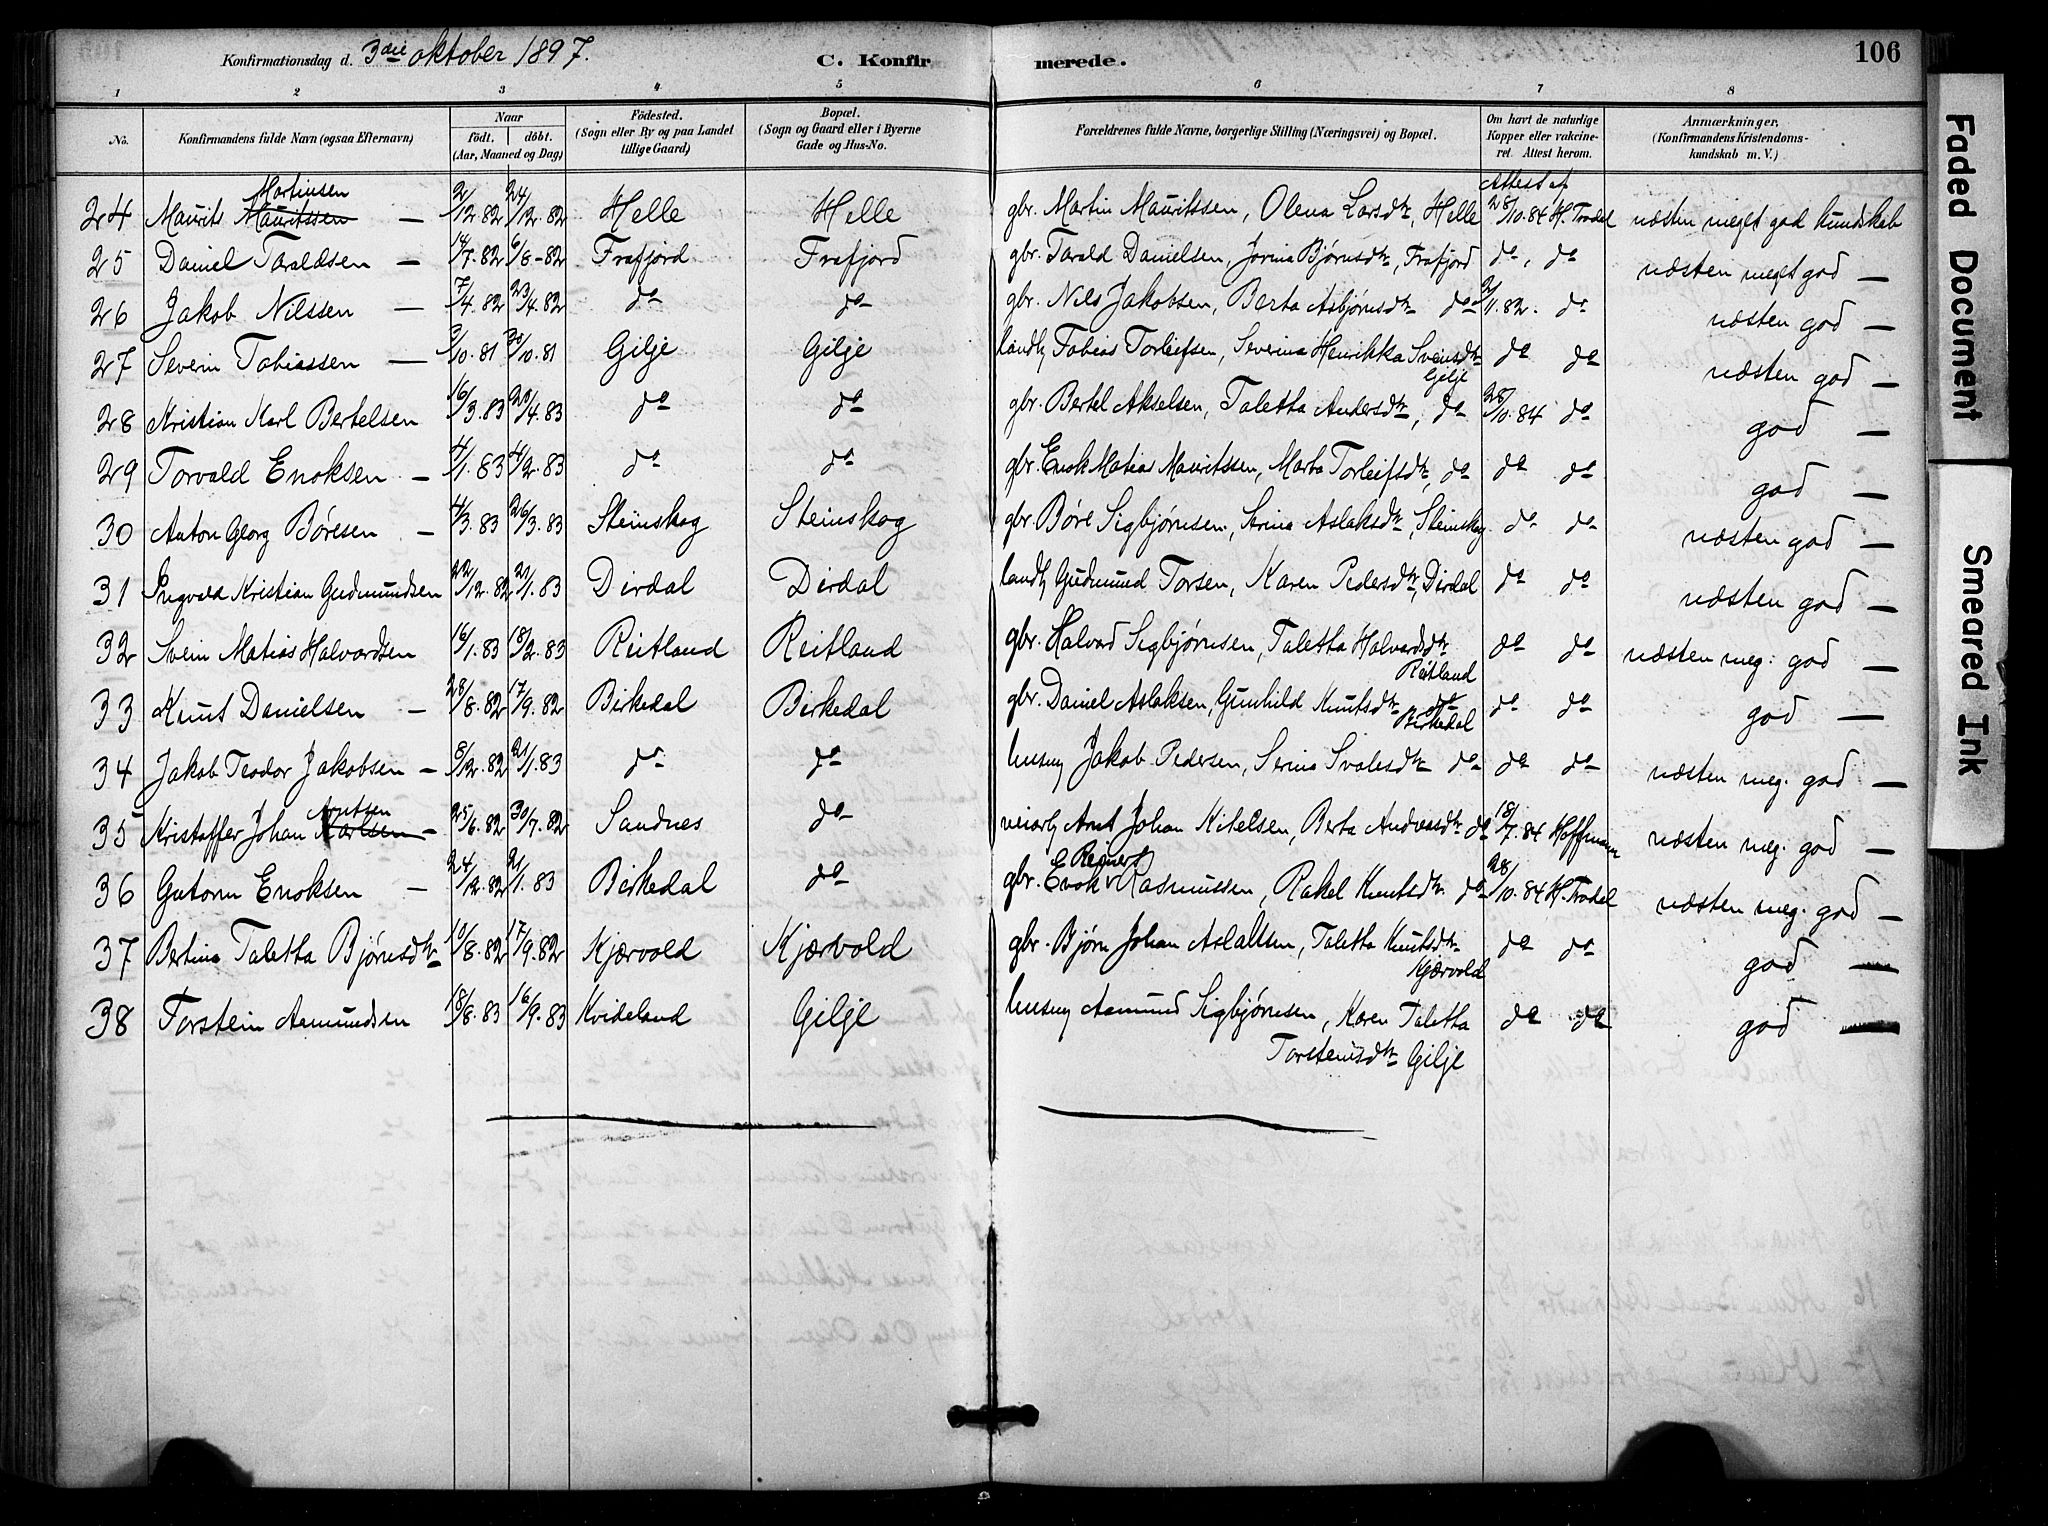 Konfirmationsdag d. 3die oktober 1897.
C. Konfirmerede.
106
1 2 3 4 5 6 7 8
No.
Konfirmandens fulde Navn (ogsaa Efternavn)
Naar
födt. döbt.
(Aar, Maaned og Dag)
Födested.
(Sogn eller By og paa Landet
tillige Gaard)
Bopæl.
(Sogn og Gaard eller i Byerne
Gade og Hus-No.
Forældrenes fulde Navne, borgerlige Stilling (Næringsvei) og Bopæl.
Om havt de naturlige
Kopper eller vakcine-
ret. Attest herom.
Anmærkninger,
(Konfirmandens Kristendoms-
kundskab m. V.)
Martinsen
Attest af
24 Maurits Mauritssen — 2/12.82 24/12.82 Helle Helle gbr. Martin Mauritssen, Olena Larsdtr, Helle 28/10.84 H. Tradal næsten meget god kundskab
25 Daniel Taraldsen — 14/7.82 6/8-82 Frafjord Frafjord gbr. Tarald Danielsen, Jorina Bjørnsdtr, Frafjord do, do næsten meget god —
26 Jakob Nilssen — 7/4.82 23/4.82 do do gbr. Nils Jakobsen, Berta Asbjørnsdtr do 2/11.82. do næsten god —
27 Severin Tobiassen — 3/10.81 30/10.81 Gilje Gilje landhj Tobias Torleifsen, Severina Henrikka Svensdtr do do næsten god —
Gilje
28 Kristian Karl Bertelsen 16/3.83 23/4.83 do do gbr. Bertel Akselsen, Taletta Andersdtr, do 28/10.84 do god —
29 Torvald Enoksen — 4/1.83 4/2.83 do do gbr. Enok Matias Mauritssen, Marta Torleifsdtr, do do do god —
30 Anton Georg Børesen — 4/3.83 26/3.83 Steinskog Steinskog gbr. Børe Sigbjørnsen, Serina Aslaksdtr, Steinskog do do næsten god —
31 Ingvald Kristian Gudmundsen 22/12.82 21/1.83 Dirdal Dirdal landhj Gudmund Torsen, Karen Pedersdtr, Dirdal do do næsten god —
32 Svein Matias Halvardsen 16/1.83 18/2.83 Reitland Reitland gbr. Halvard Sigbjørnsen, Taletta Halvardsdtr do do næsten meg. god —
Reitland
33 Knut Danielsen — 28/8.82 17/9.82 Birkedal Birkedal gbr. Daniel Aslaksen, Gunhild Knutsdtr do do do god —
Birkedal
34 Jakob Teodor Jakobsen — 8/12.82 21/1.83 do do husmg Jakob Pedersen, Serina Svalesdtr do do do næsten meg. god —
Arntsen
35 Kristoffer Johan Karlsen — 25/6.82 30/7.82 Sandnes do veiarb Arnt Johan Kitelsen, Berta Andreasdtr do 18/7.84 Hoffmann næsten meg. god —
Reiners
36 Gutorm Enoksen — 24/12.82 21/1.83 Birkedal do gbr. Enok Rasmussen, Rakel Knutsdtr. do 28/10.84 H. Tradal næsten meg. god —
37 Bertina Taletta Bjørnsdtr 10/8.82 17/9.82 Kjærvold Kjærvold gbr. Bjørn Johan Aslaksen, Taletta Knutsdtr do do god —
Kjærvold
38 Torstein Aamundsen 18/8.83 16/9.83 Kvideland Gilje husmg Aamund Sigbjørnsen, Karen Taletta do do god —
Torsteinsdtr Gilje
Faded Document
Smeared Ink